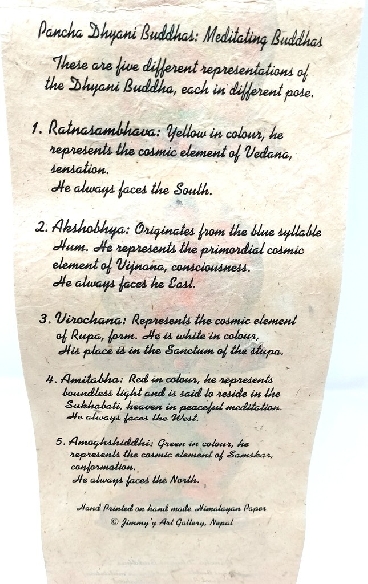 Pancha Dhyani Buddhas: Meditating Buddhas
These are five different representations of
the Dhyani Buddha, each in different pose.
1. Ratnasambhava: Yellow in colour, he
represents the cosmic element of Vedana,
sensation.
He always faces the South.
2. Akshobhya: Originates from the blue syllable
Hum. He represents the primordial cosmic
element of Vijnana, consciousness.
He always faces he East.
3. Virochana: Represents the cosmic element
of Rupa, form. He is white in colour,
His place is in the Sanctum of the stupa.
4. Amitabha: Red in colour, he represents
boundless light and is said to reside in the
Sukhabati, heaven in peaceful meditation.
He always faces the West.
5. Amoghshiddhi: Green in colour, he
represents the cosmic element of Samskar,
conformation.
He always faces the North.
Hand Printed on hand made Himalayan Paper
© Jimmy'y Art Gallery, Nepal